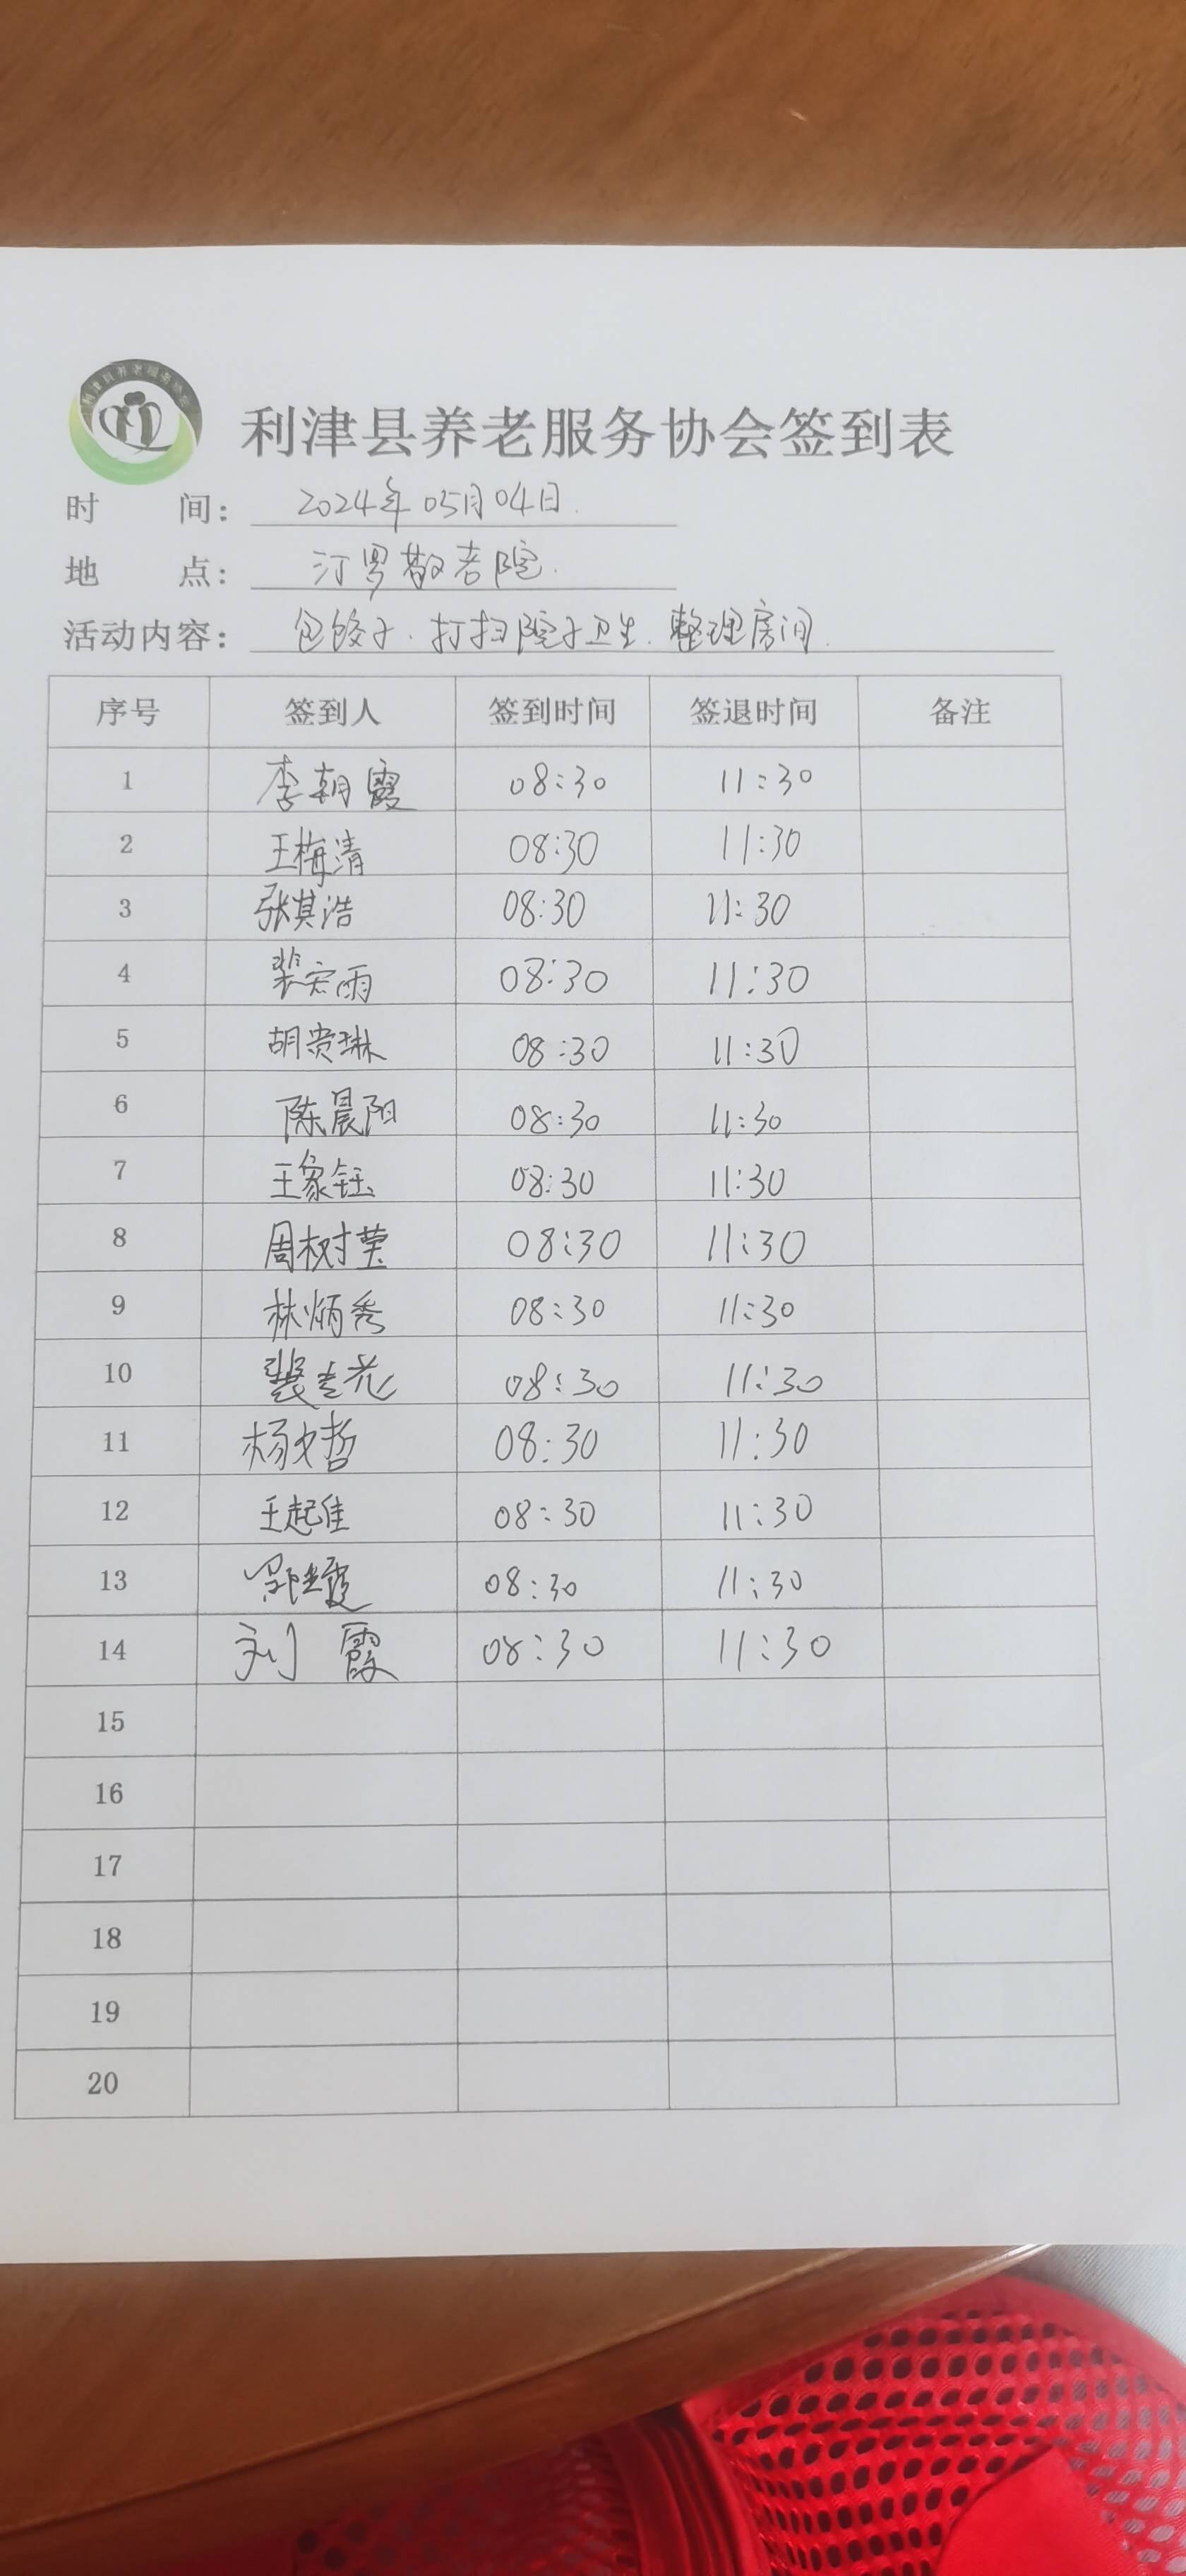 利津县养老服务协会
利津县养老服务协会签到表
时 间： 2024年05月04日.
地 点： 汀罗敬老院.
活动内容： 包饺子.打扫院子卫生.整理房间.
序号 签到人 签到时间 签退时间 备注
1 李朝霞 08:30 11:30
2 王梅清 08:30 11:30
3 张其浩 08:30 11:30
4 裴宏雨 08:30 11:30
5 胡贵琳 08:30 11:30
6 陈晨阳 08:30 11:30
7 王家钰 08:30 11:30
8 周树莹 08:30 11:30
9 林炳秀 08:30 11:30
10 08:30 11:30
11 杨文哲 08:30 11:30
12 王起佳 08:30 11:30
13 08:30 11:30
14 刘霞 08:30 11:30
15
16
17
18
19
20